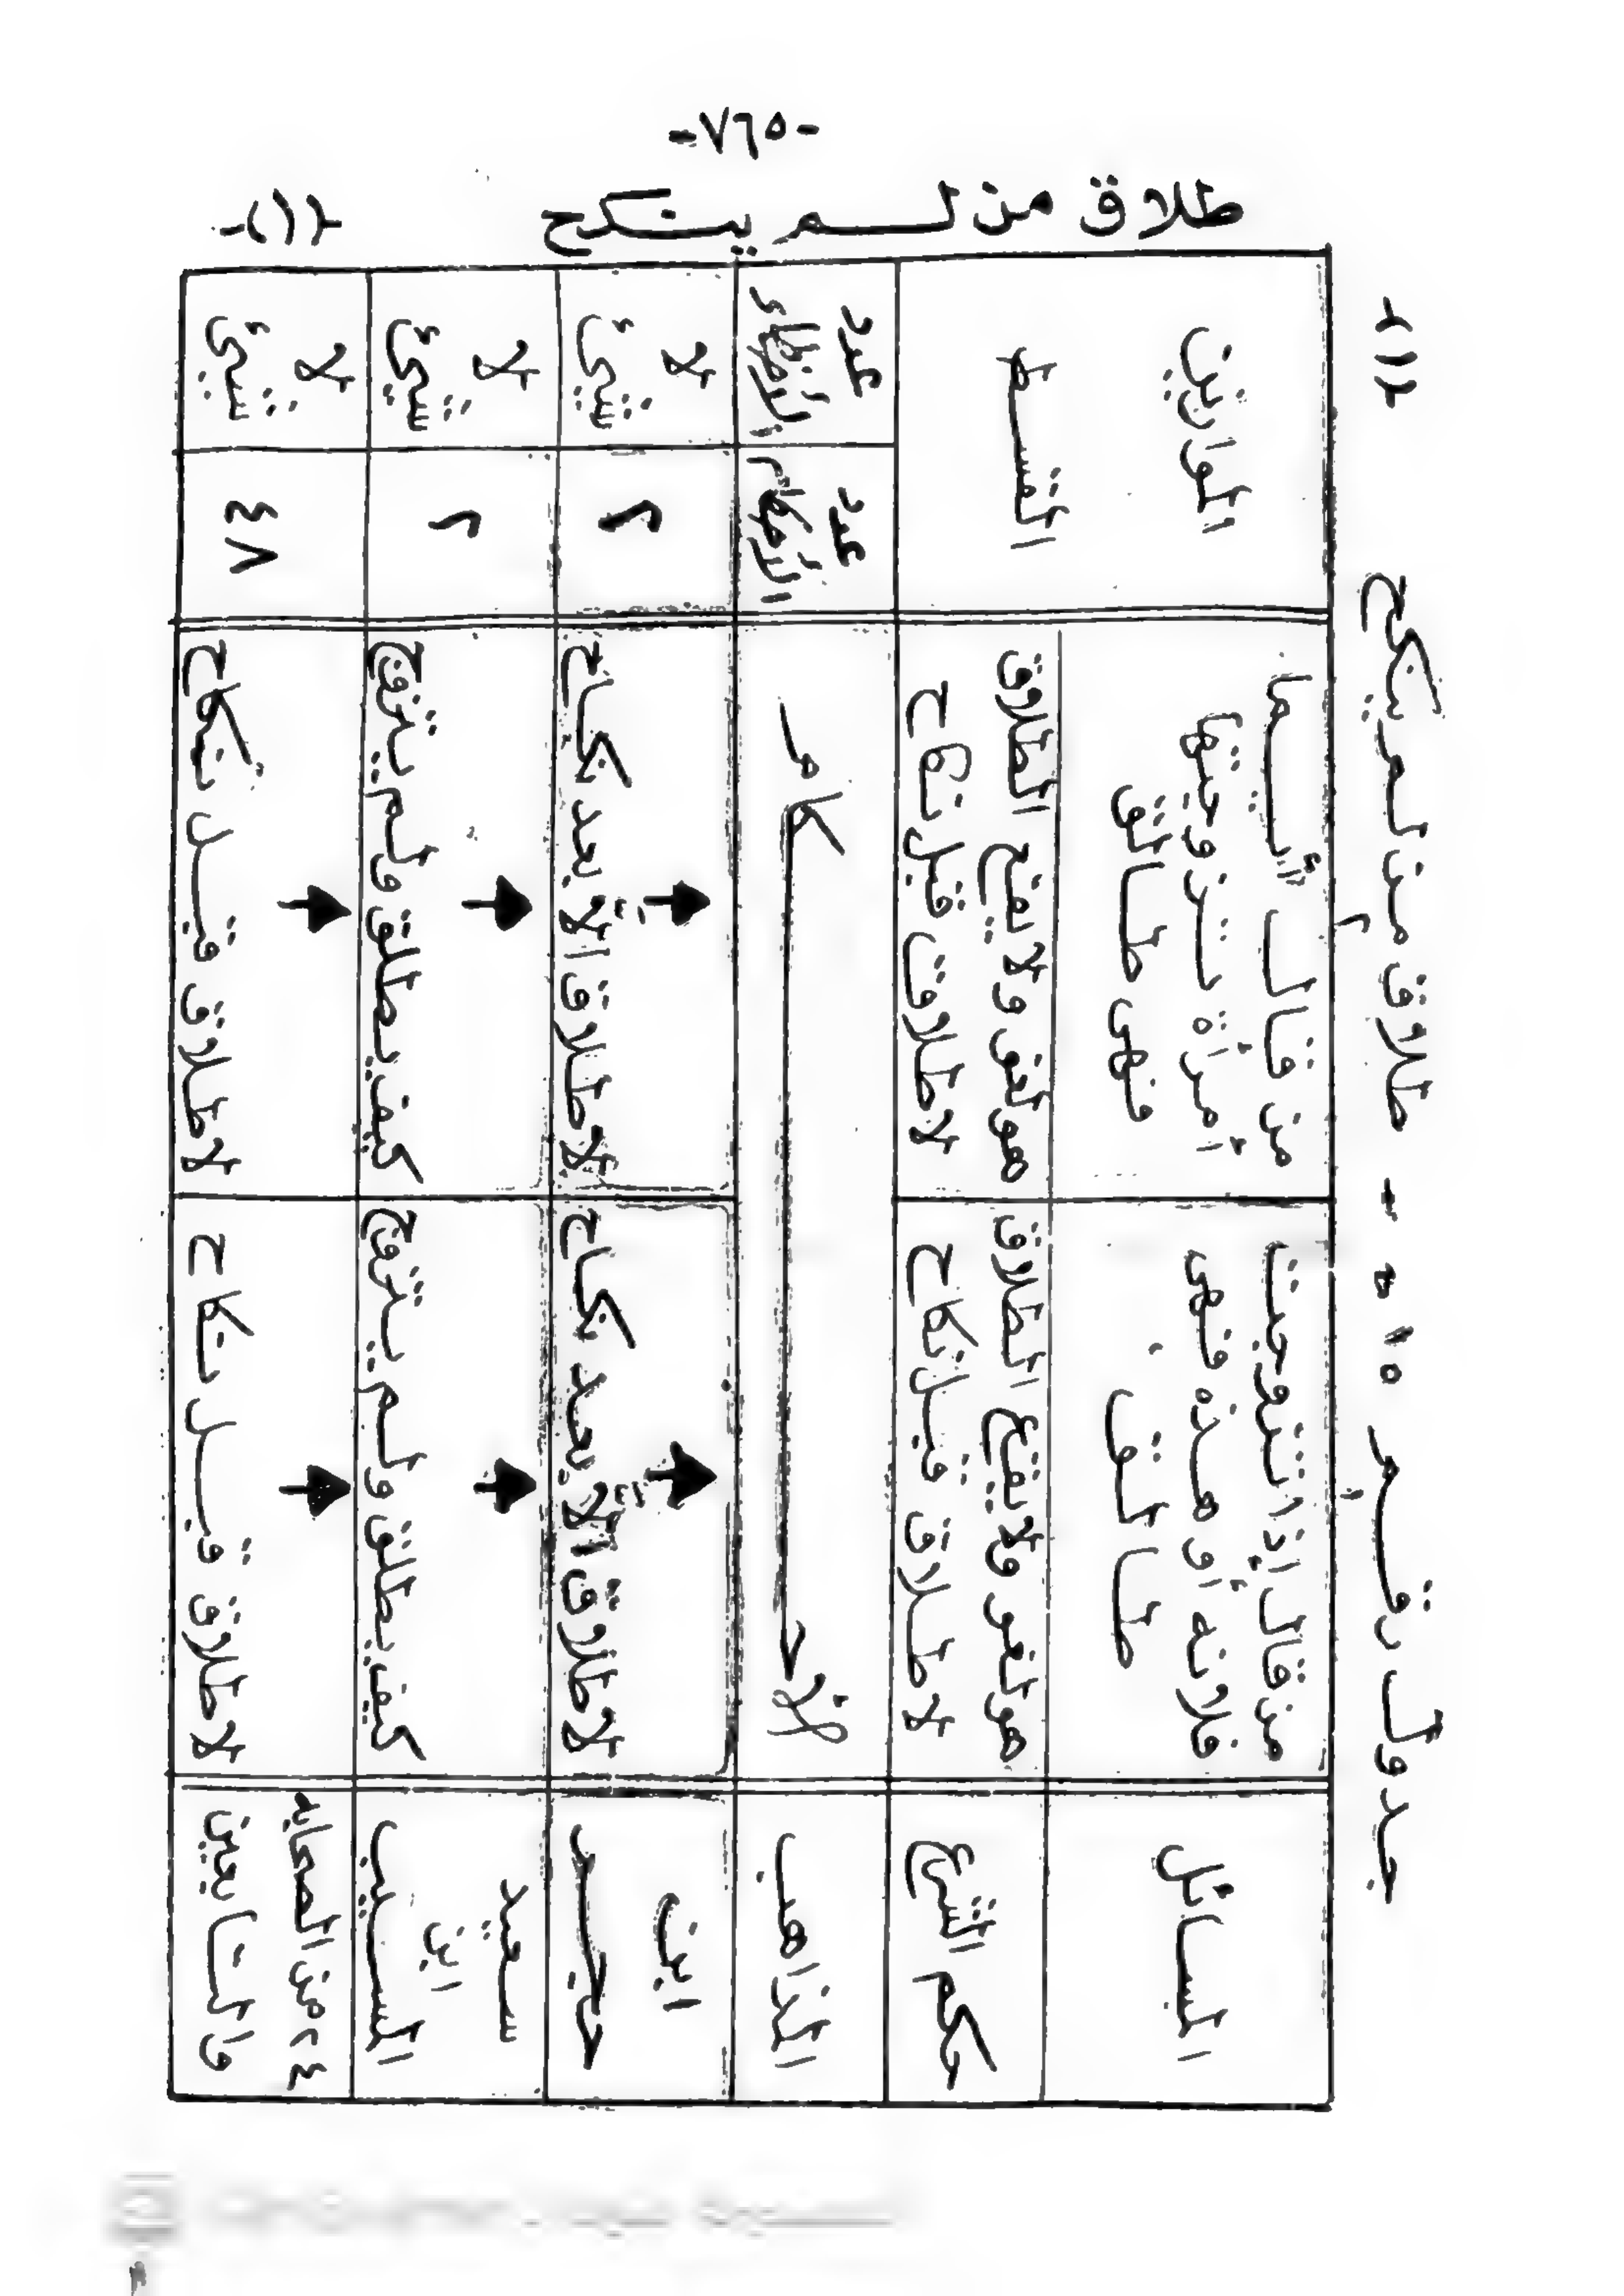 -٧٦٥-
طلاق من لم ينكح -(١)-
جدول رقم ٥١٥ - طلاق من لم ينكح (١)
المسائل
من قال إذا تزوجت
فلانه أو هذه فهى
طالق
من قال أيما
امرأة تزوجتها
فهى طالق
الموازين
القسط
حكم الشرع
هو لغو ولا يقع الطلاق
لا طلاق قبل نكاح
هو لغو ولا يقع الطلاق
لا طلاق قبل نكاح
المذاهب
الأحكام
عدد
الأحكام
عدد
الأخطاء
ابن
حجر
لا طلاق الا بعد نكاح
لا طلاق الا بعد نكاح
٢
لا
شىء
سعيد
ابن
المسيب
كيف يطلق ولم يتزوج
كيف يطلق ولم يتزوج
٢
لا
شىء
٢٤ من الصحابه
والتابعين
لا طلاق قبل نكاح
لا طلاق قبل نكاح
٤٨
لا
شىء